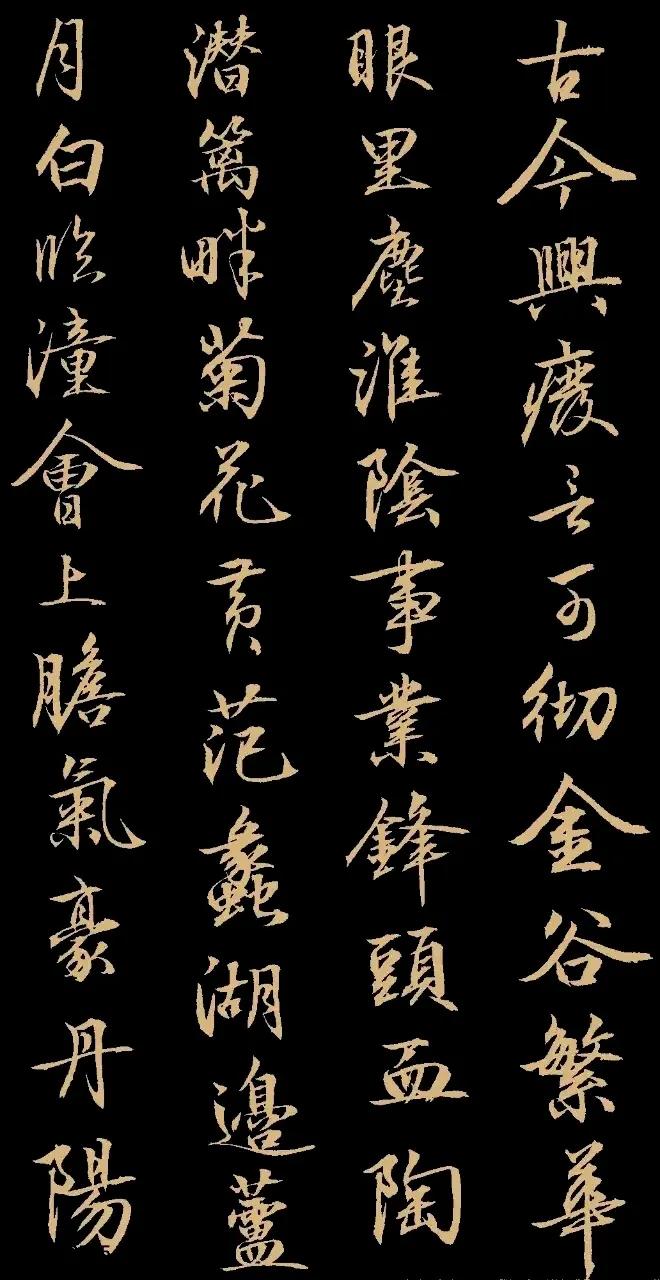 古今興癈言可彻金谷繁華
眼里塵淮陰事業鋒頭血陶
潜篱畔菊花黄范蠡湖邊蘆
月白臨潼會上膽氣豪丹陽